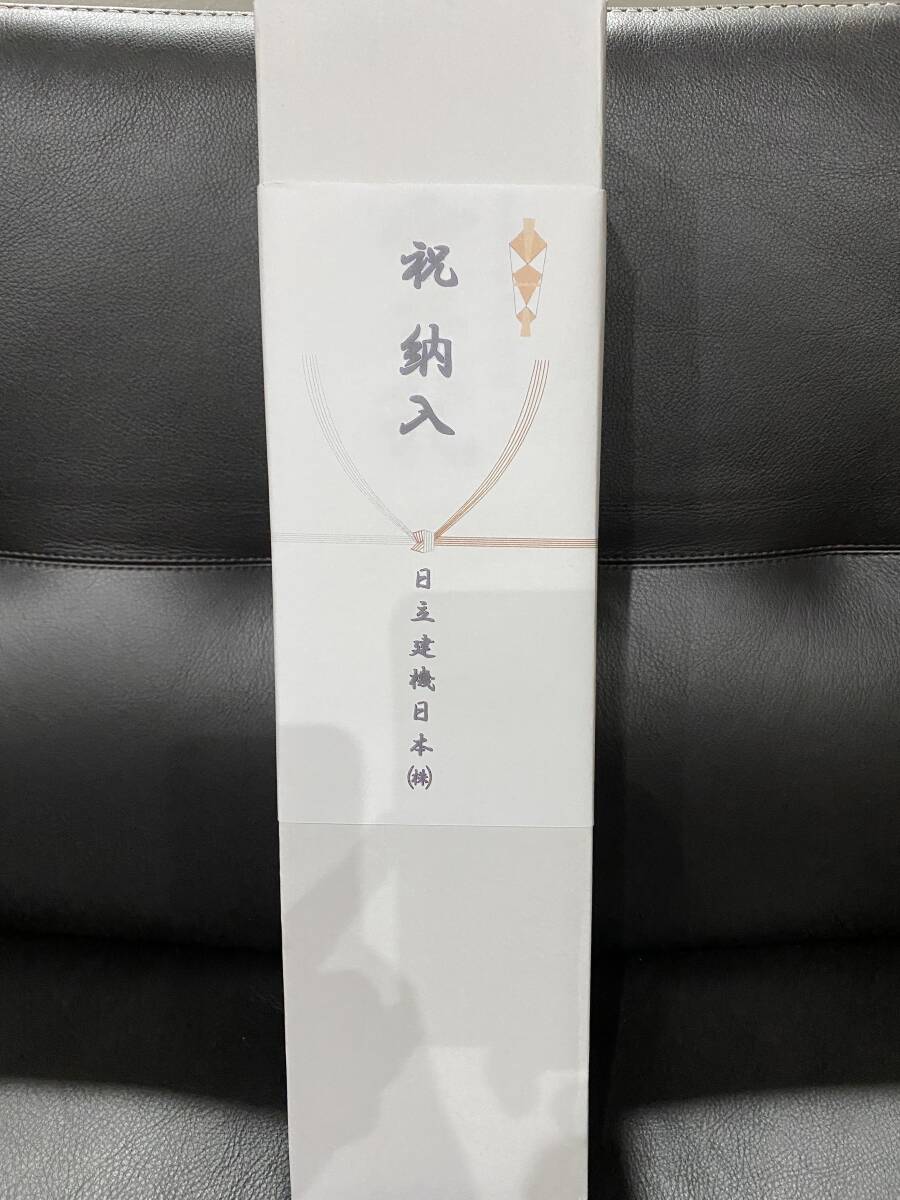 祝 納入
日立建機日本㈱